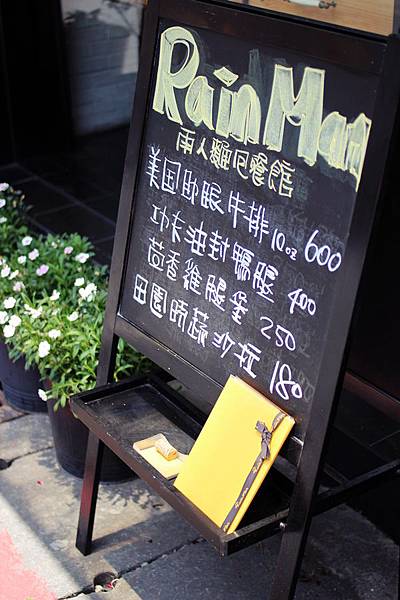 Rain Man
雨人雞尾餐館
美国肋眼牛排 10oz 600
功夫油封鴨腿 400
茴香雞腿堡 250
田園時蔬沙拉 180